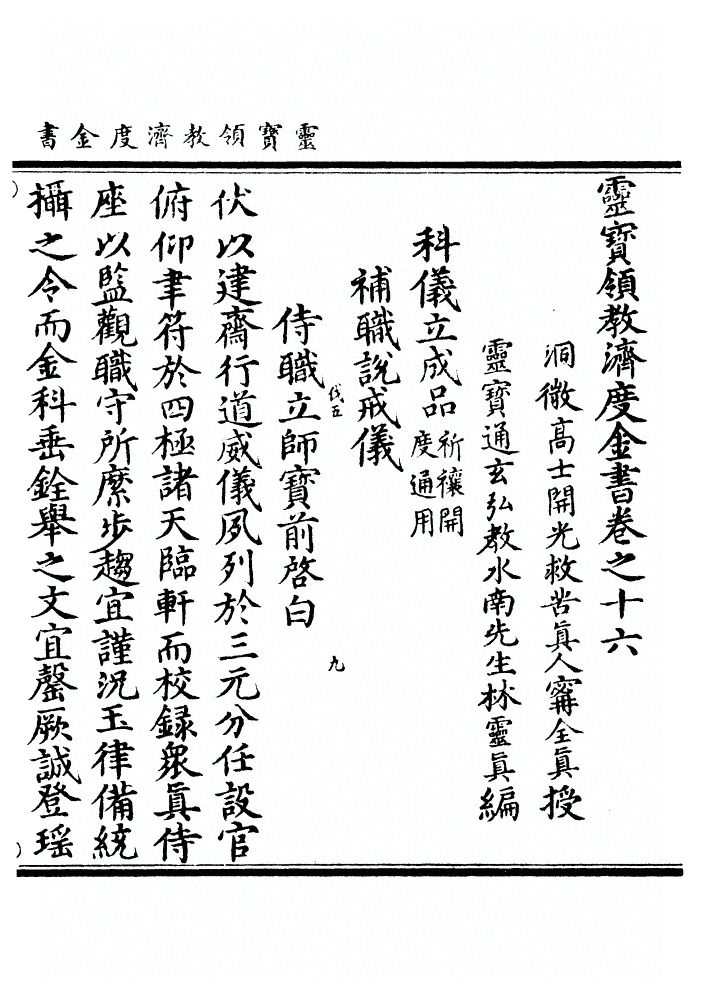 靈寶領教濟度金書
靈寶領教濟度金書卷之十六
洞微高士開光救苦眞人甯全眞授
靈寶通玄弘教水南先生林靈眞編
科儀立成品祈禳開度通用
補職說戒儀
伐五
九
侍職立師寶前啓白
伏以建齋行道威儀夙列於三元分任設官
俯仰聿符於四極諸天臨軒而校録衆眞侍
座以監觀職守所縻步趨宜謹況玉律備統
攝之令而金科垂銓舉之文宜罄厥誠登瑶